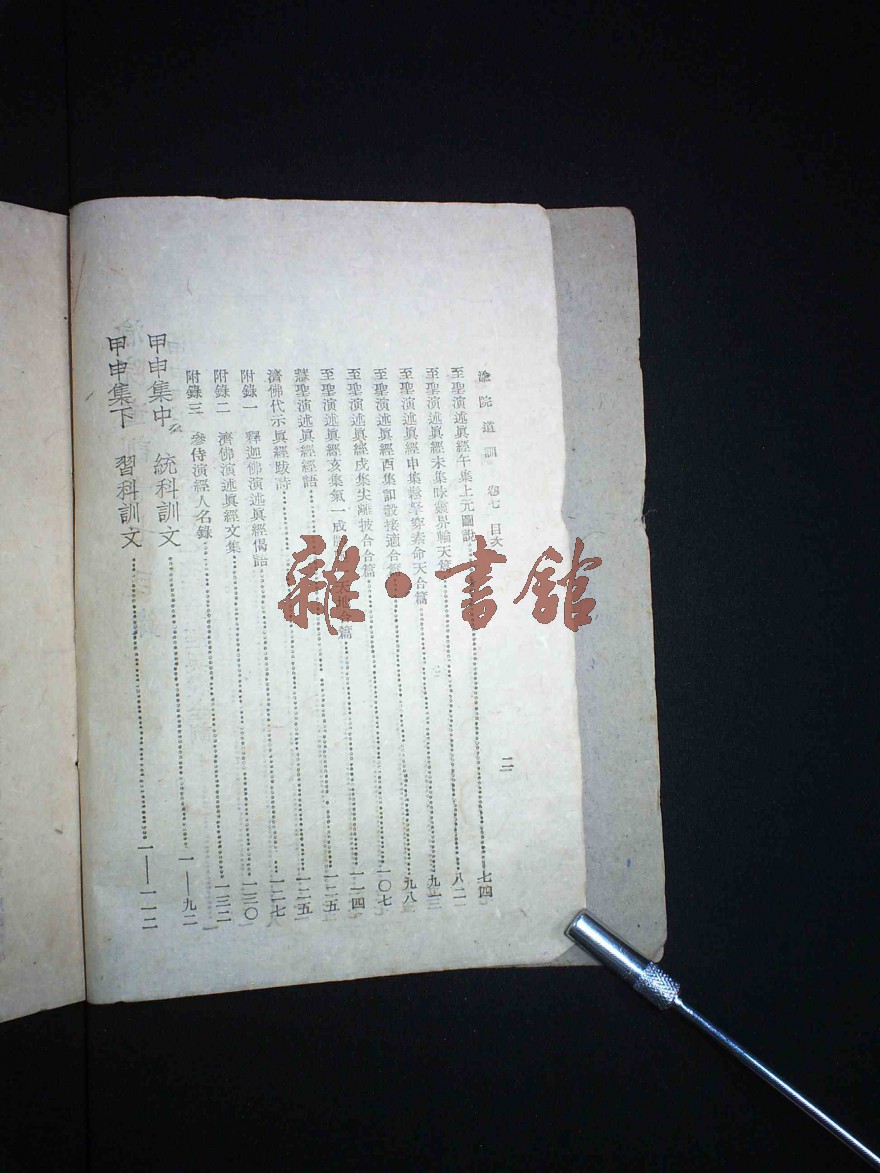 渝院道訓 卷七 目次 二
至聖演述眞經午集上元圖說 七四
至聖演述眞經未集咏靈界輪天篇 八二
至聖演述眞經申集 穿素命天合篇 九三
至聖演述眞經酉集 殼接適合 九八
至聖演述眞經戌集尖離披合合篇 一〇七
至聖演述眞經亥集氣一成 天地合篇 一一四
聖演述眞經經語 一二五
濟佛代示眞經跋詩 一二七
附錄一 釋迦佛演述眞經偈語 一三〇
附錄二 濟佛演述眞經文集 一三二
附錄三 參侍演經人名錄
甲申集中 統科訓文 一—九二
甲申集下 習科訓文 一—一一二
雜·書館